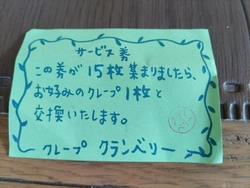 サービス券
この券が15枚集まりましたら、
お好みのクレープ1枚と
交換いたします。
クレープ クランベリー